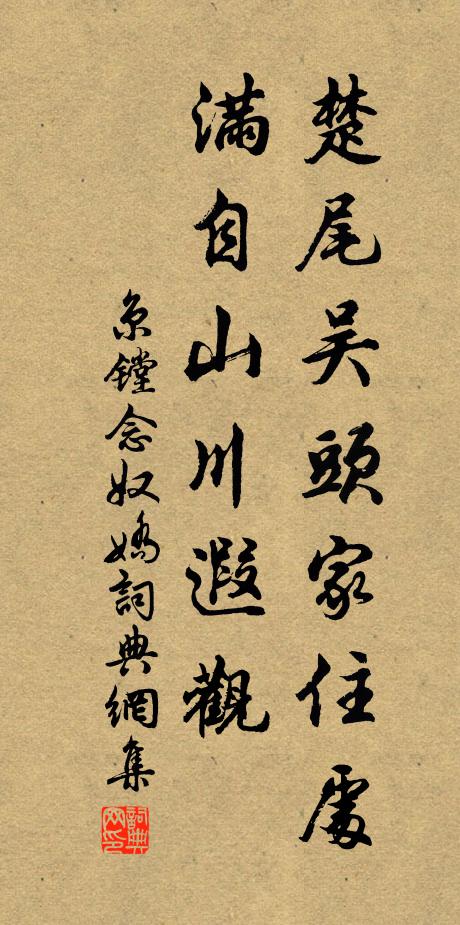 楚尾吴頭家住處
滿目山川遐觀
京鏜念奴嬌詞典網集
詞典网印